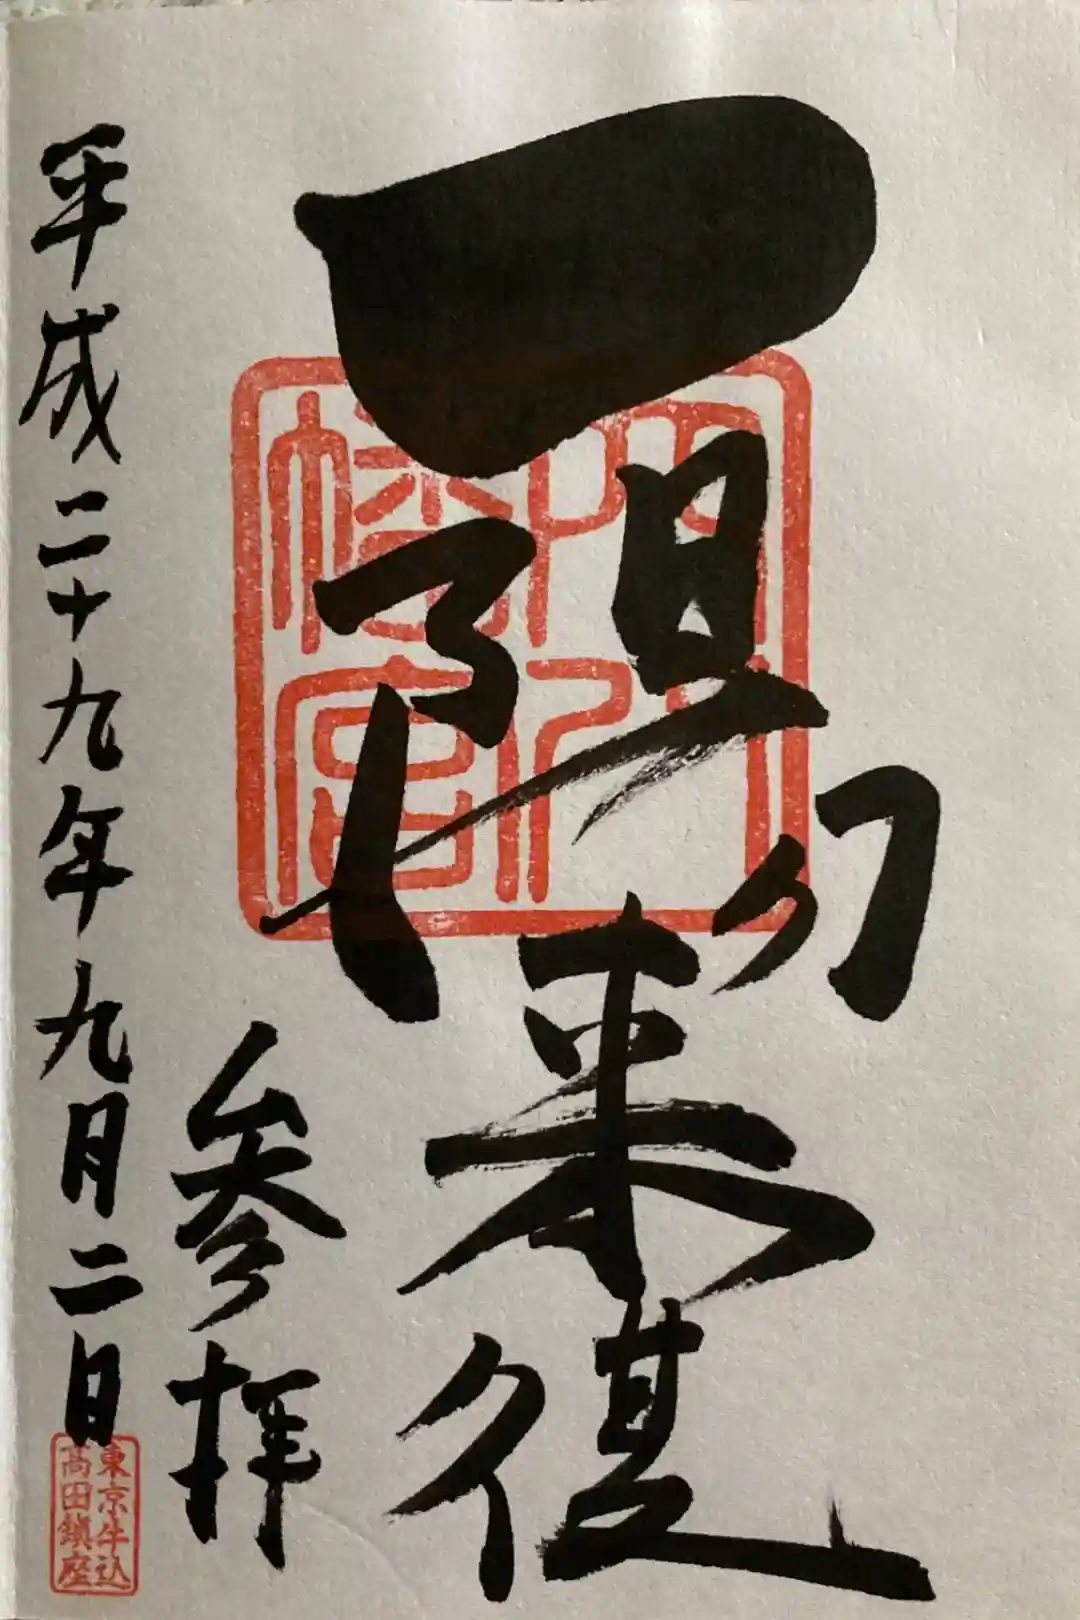 一陽来復
穴八
幡宮
参拝
平成二十九年九月二日
東京牛込
高田鎮座